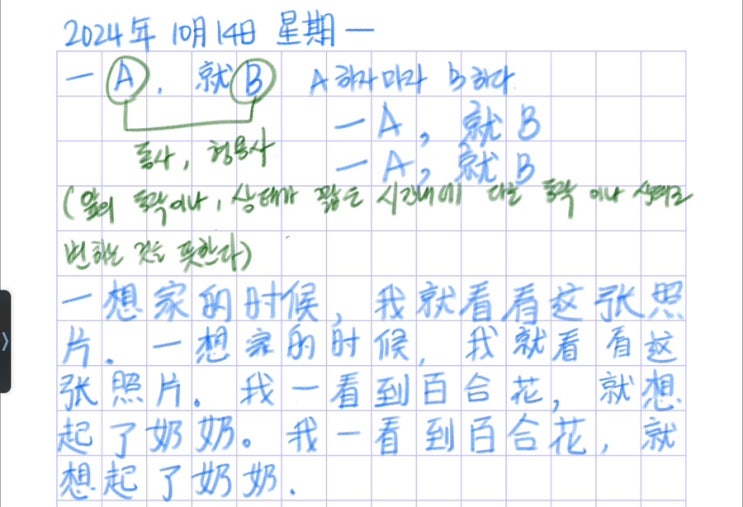 2024年 10月 14日 星期一
一A, 就B A하자마자 B하다
一A, 就B
동사, 형용사 一A, 就B
(앞의 동작이나, 상태가 짧은 시간내에 다른 동작 이나 상태로
변하는 것을 뜻한다)
一想家的时候, 我就看看这张照
片. 一想家的时候, 我就看看这
张照片. 我一看到百合花, 就想
起了奶奶。我一看到百合花, 就
想起了奶奶.